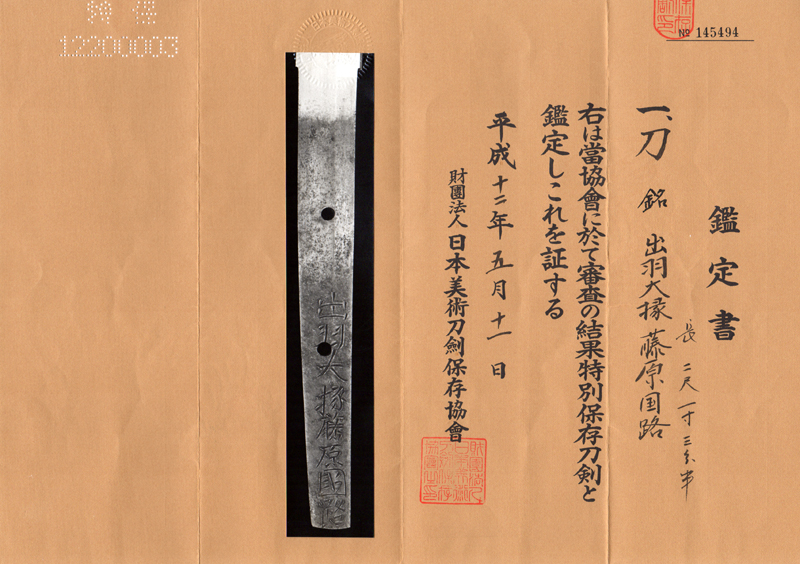 № 145494
鑑定書
一、刀 銘 出羽大掾藤原国路
長 二尺一寸三分半
右は當協會に於て審査の結果特別保存刀剣と
鑑定しこれを証する
平成十二年五月十一日
財團法人 日本美術刀劍保存協會
出羽大掾藤原國路
特保
12200003